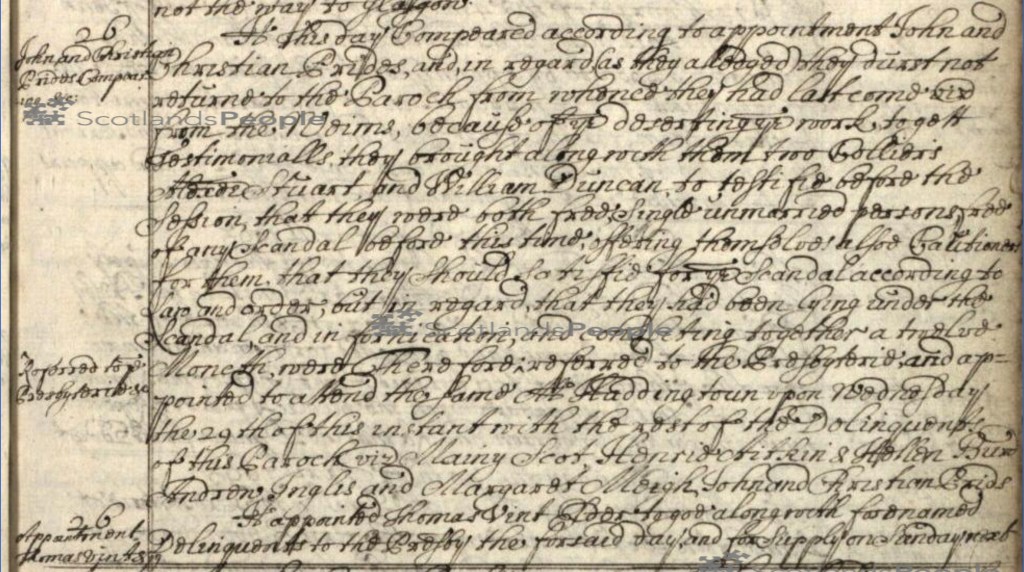 not the way to Glasgow
26
It. this day Compeared according to appointment John and
John and Christian
Prides Compear
Christian Prides, and, in regard (as they alledged) they durst not
returne to the Paroch from whence they had last come viz
from the Weims, because of yr deserting yr work, to gett
Testimonialls, they brought along with them two Colliers
Stuart and William Duncan, to testifie before the
Session, that they were both free, single unmarried persons, free
of any Scandal before this time, offering themselves alsoe Cautioners
for them, that they should satisfie for yr Scandal according to
Law and order, but in regard, that they had been lying under the
Scandal, and in fornication, and cohabiting together a twelve
Moneth, were Therefore, referred to the Presbyterie, and ap=
Referred to ye
Presbyterie
pointed to attend the same At Haddingtoun upon Wednesday
the 29th of this instant with the rest of the Delinquents
of this Paroch viz Mainy Scot, Henrie Aitkin & Hellen
Andrew Inglis and Margaret Meigh, John and Kristian Prids
26
It. appointed Thomas Vint Elder to goe along with forenamed
Appointment
Thomas Vint
Delinquents to the Presby the forsaid day, and for supply on Sanday next
ScotlandsPeople
ScotlandsPeople
ScotlandsPeople